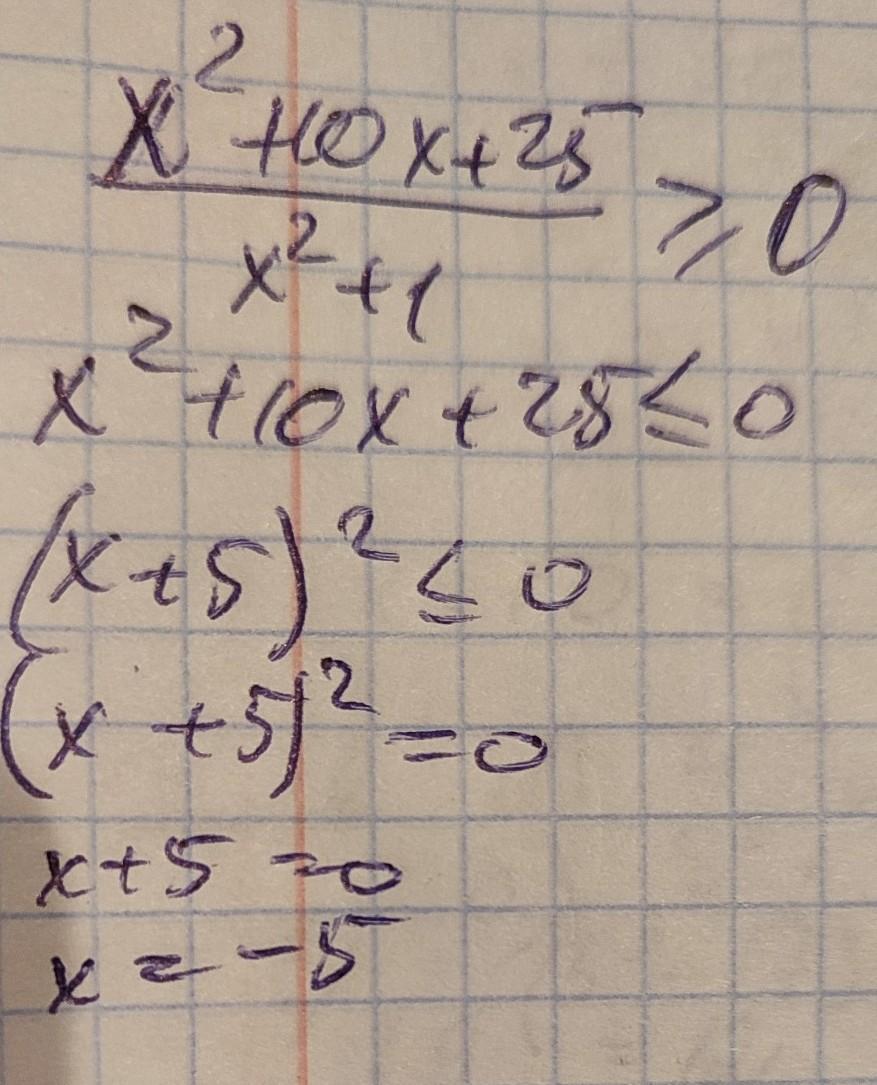 x² + 10x + 25
x² + 1 ⩾ 0
x² + 10x + 25 ≤ 0
(x + 5)² ≤ 0
(x + 5)² = 0
x + 5 = 0
x = -5